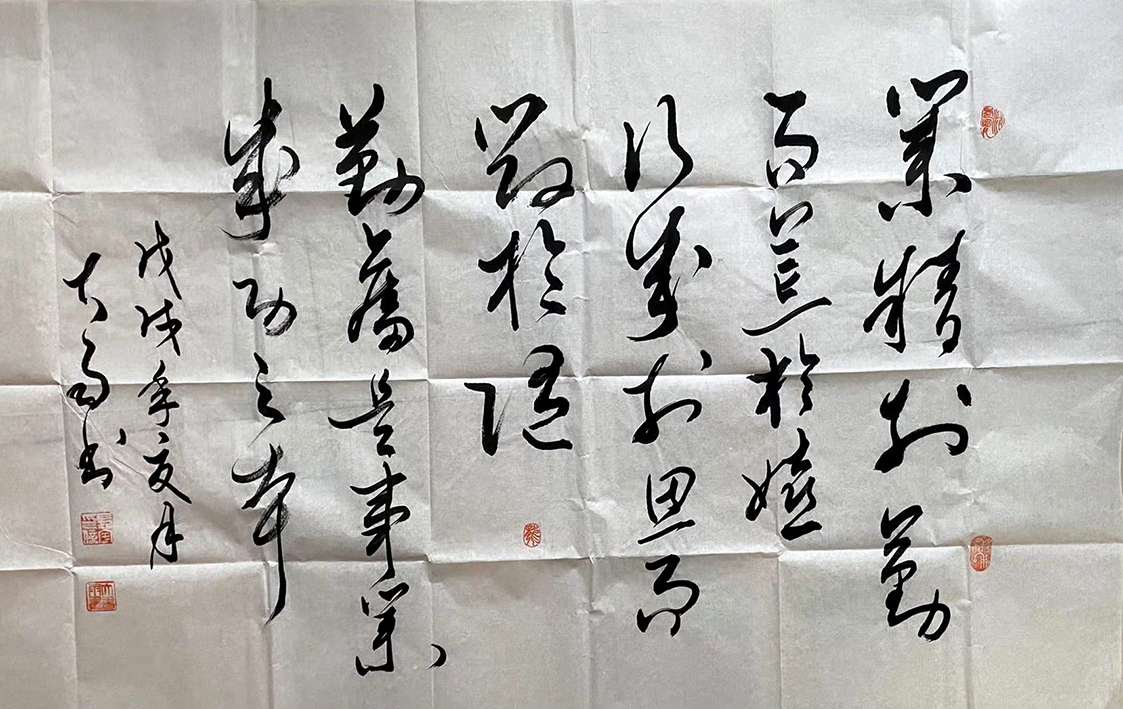 業精於勤
而荒於嬉
行成於思而
毁於随
勤奮是事業
成功之本
戊戌年夏月
书